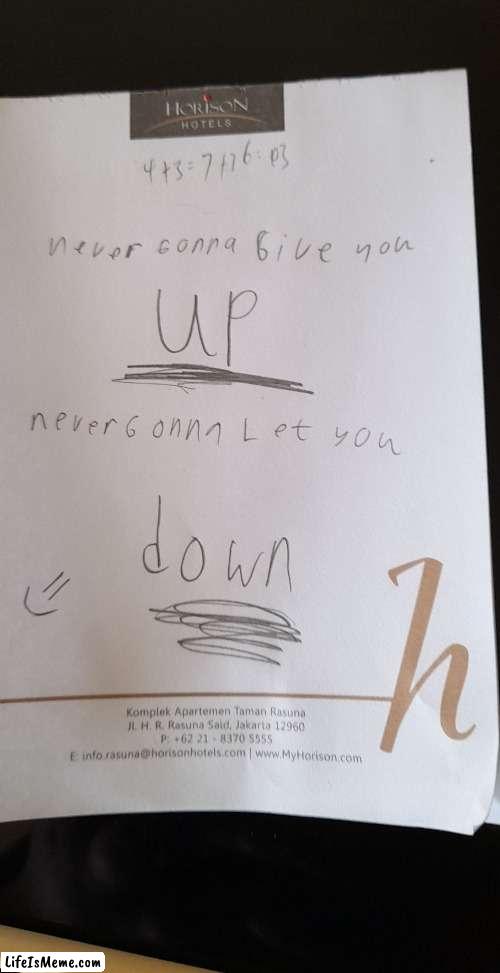 HORISON
HOTELS
never gonna Give you
UP
never Gonna Let you
down
h
Komplek Apartemen Taman Rasuna
Jl. H. R. Rasuna Said, Jakarta 12960
P: +62 21 - 8370 5555
E: info.rasuna@horisonhotels.com | www.MyHorison.com
LifeIsMeme.com